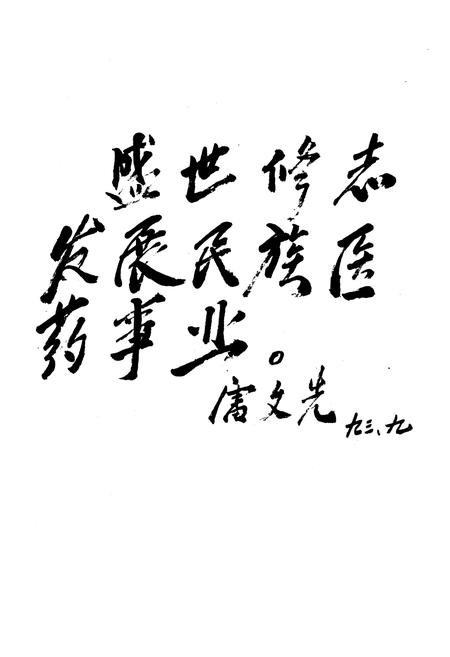 盛世修志
发展民族医
药事业。
富文先
九三、九